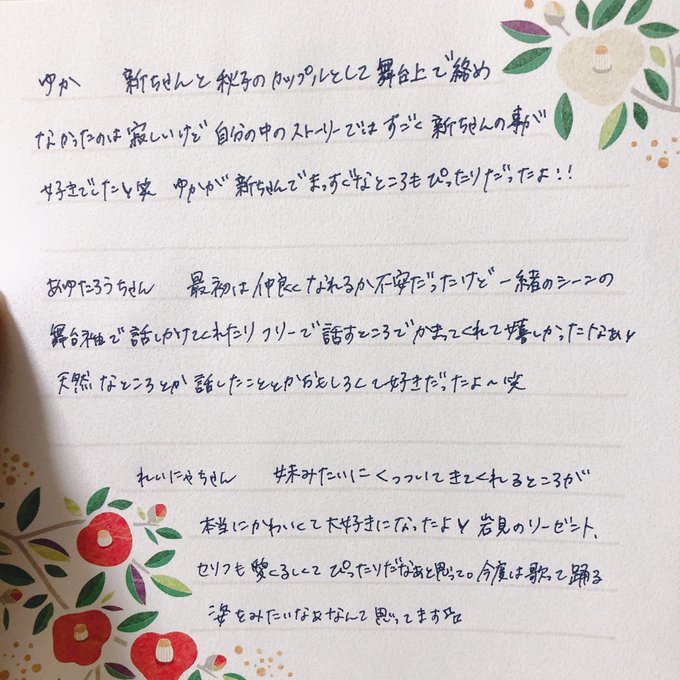 ゆか 新ちゃんと秋子のカップルとして舞台上で絡め
なかったのは寂しいけど自分の中のストーリーではすごく新ちゃんの事が
好きでした♡笑 ゆかが新ちゃんでまっすぐなところもぴったりだったよ!!
あゆたろうちゃん 最初は仲良くなれるか不安だったけど一緒のシーンの
舞台袖で話しかけてくれたりフリーで話すところでかまってくれて嬉しかったなぁ♡
天然なところとか話したこととかおもしろくて好きだったよ〜笑
れいにゃちゃん 妹みたいにくっついてきてくれるところが
本当にかわいくて大好きになったよ♡岩見のリーゼント、
セリフも愛くるしくてぴったりだなぁと思って。今度は歌って踊る
姿をみたいなぁなんて思ってます